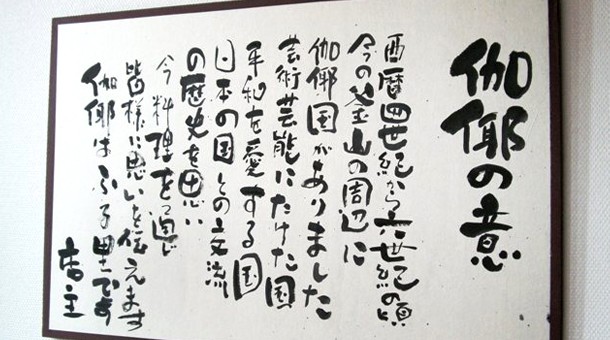 伽耶の意
西暦四世紀から六世紀の頃
今の釜山の周辺に
伽耶国がありました
芸術芸能にたけた国
平和を愛する国
日本の国との交流
の歴史を思い
今料理を通じ
皆様に思いを伝えます
伽耶はふる里です
店主